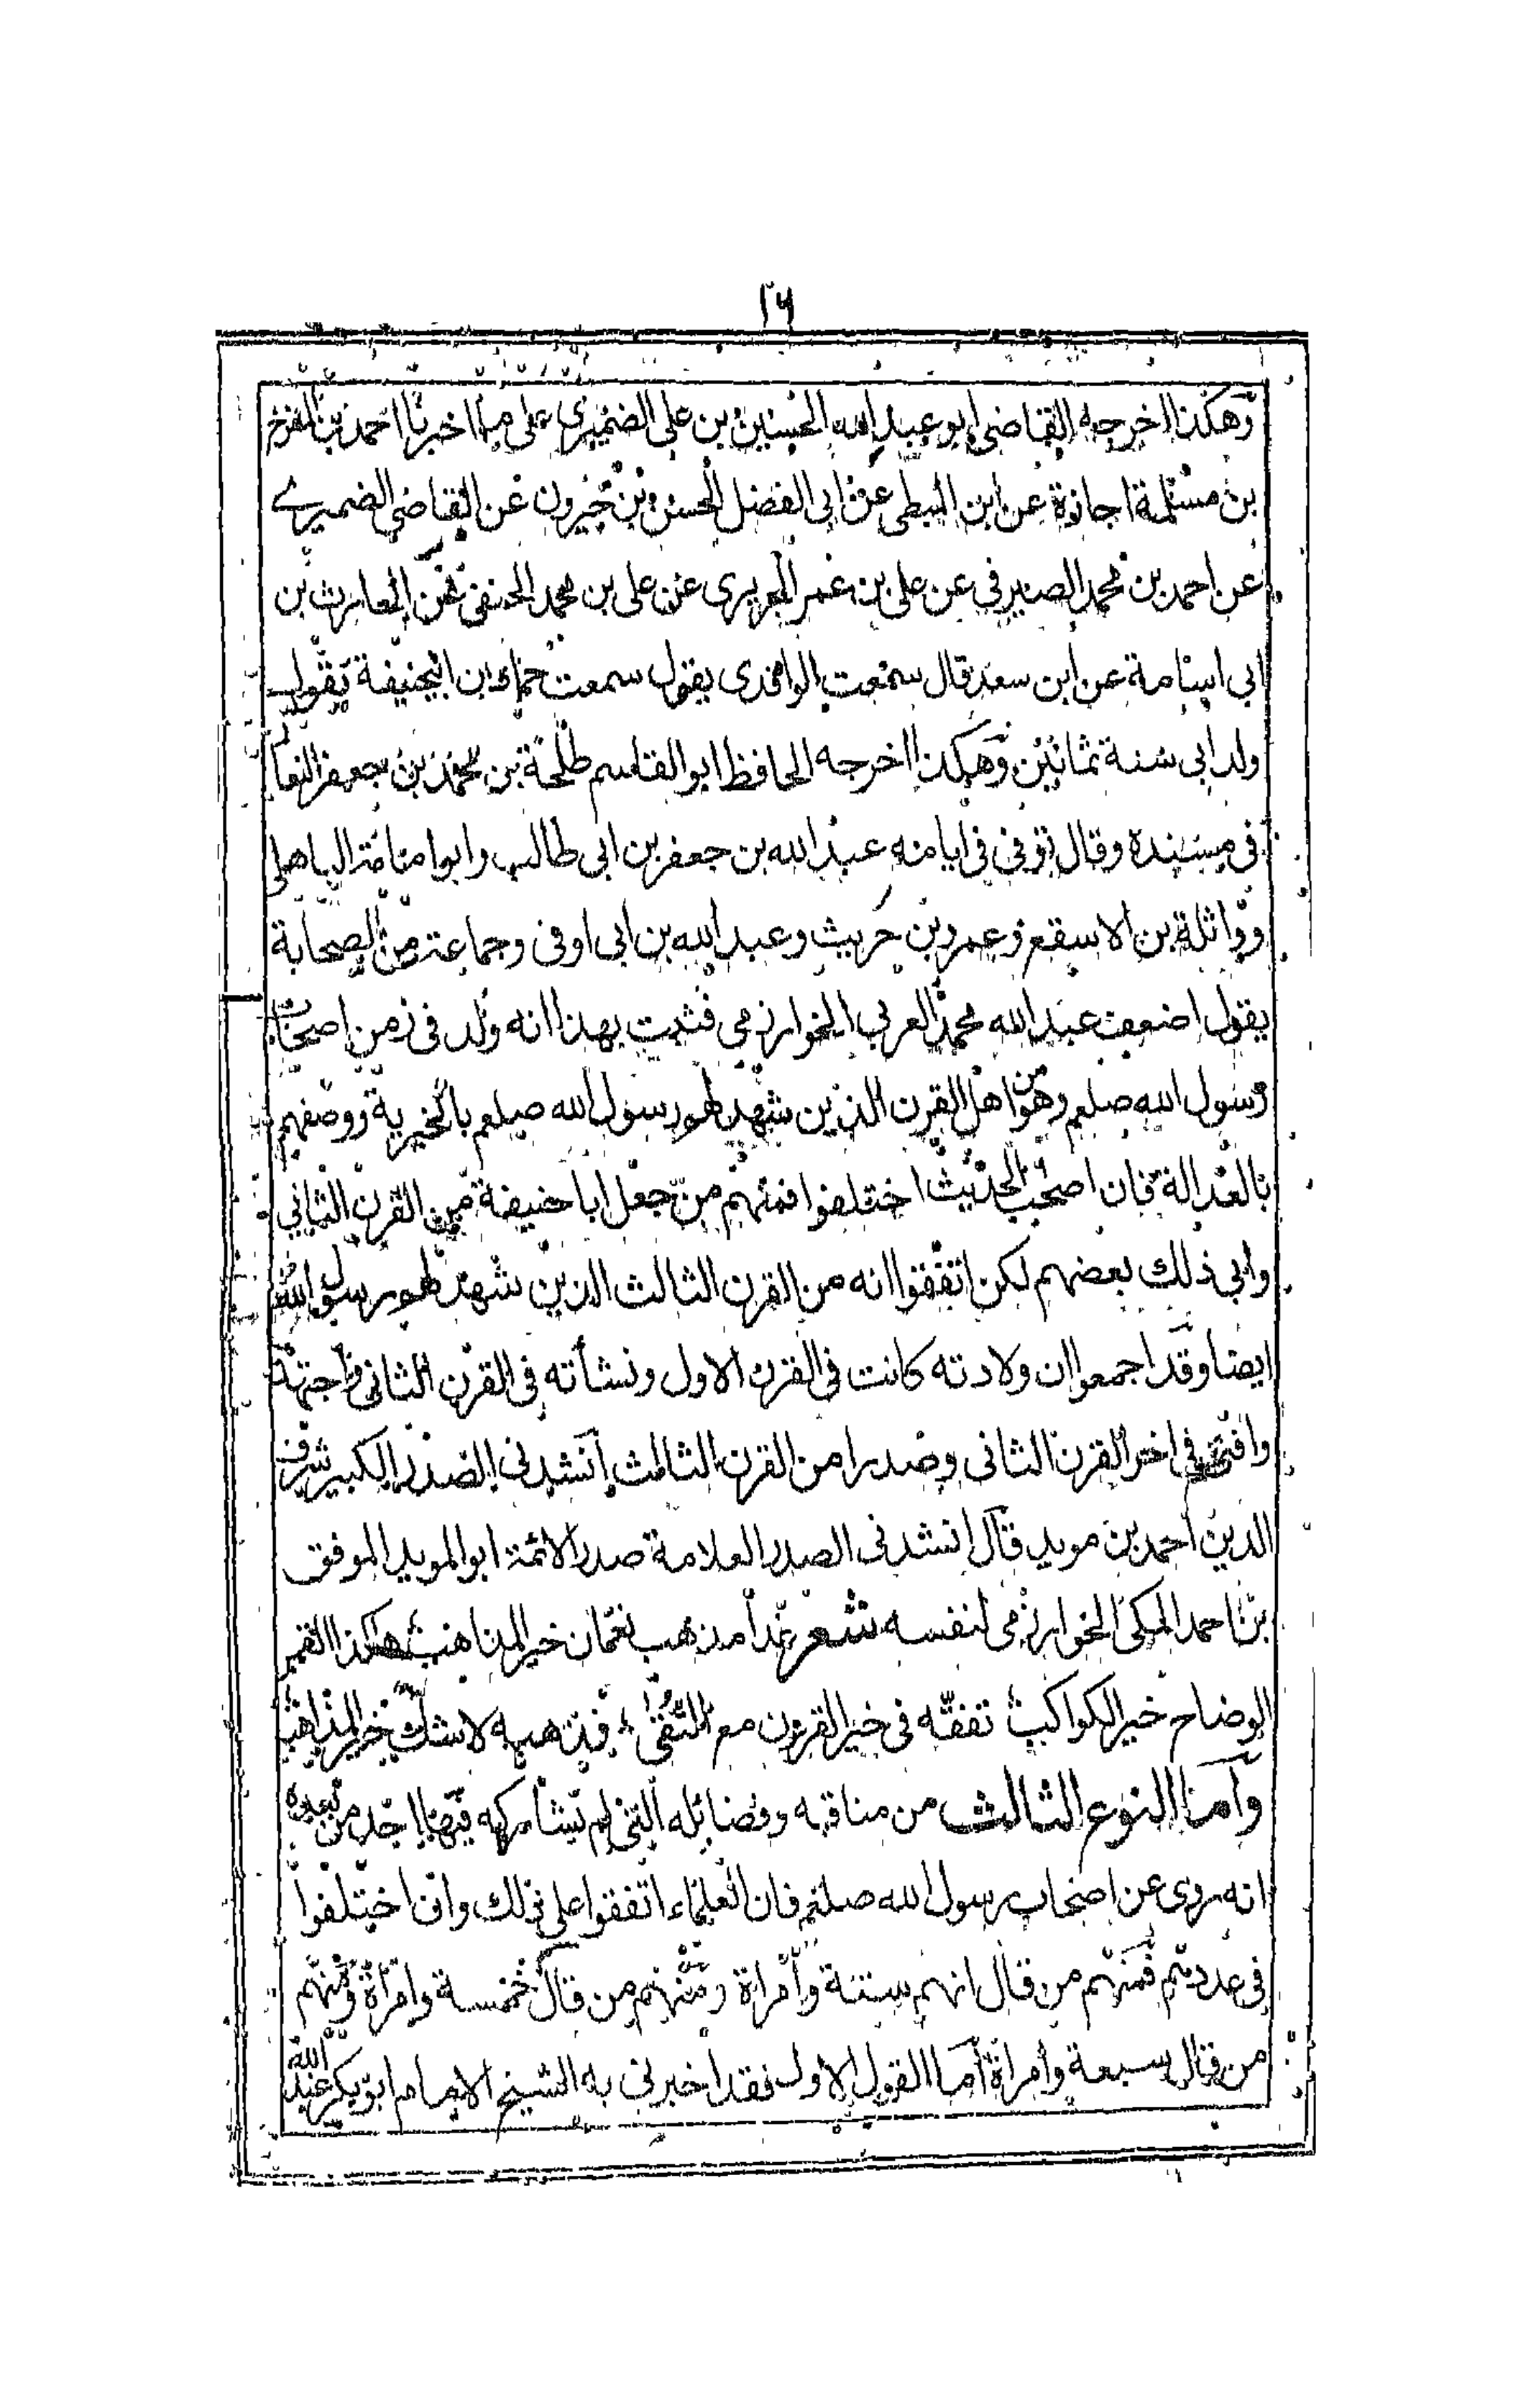 ١٦
وهكذا اخرجه القاضى ابو عبد الله الحسين بن على الضميرى على ما اخبرنا احمد بن المفرج
بن مسلمة اجازة عن ابن البطى عن ابى الفضل الحسن بن خيرون عن القاضى الضميرے
عن احمد بن محمد الصيرفي عن على بن عمر الجريرى عن على بن محمد الحنفى عن الحارث بن
ابى اسامة عن ابن سعد قال سمعت الواقدى يقول سمعت حماد بن ابيحنيفة يقول
ولد ابى سنة ثمانين وهكذا اخرجه الحافظ ابو القاسم طلحة بن محمد بن جعفر
فى مسنده وقال توفى فى ايامنه عبد الله بن جعفر بن ابى طالب وابو امامة الباهلى
وواثلة بن الاسقع وعمرو بن حريث وعبد الله بن ابى اوفى وجماعة من الصحابة
يقول اضعف عبد الله محمد العربى الخوارزمى فثبت بهذا انه ولد فى زمن اصحاب
رسول الله صلعم وهو من اهل القرن الذين شهد لهم رسول الله صلعم بالخيرية ووصفهم
بالعدالة فان اصحب الحديث اختلفوا فمنهم من جعل ابا حنيفة من القرن الثانى
وابى ذلك بعضهم لكن اتفقوا انه من القرن الثالث الذين شهد لهم رسول الله
ايضا وقد اجمعوا ان ولادته كانت فى القرن الاول ونشأته فى القرن الثانى واجتهد
وافتى فى اخر القرن الثانى وصدرا من القرن الثالث انشدنى الصدر الكبير شرف
الدين احمد بن مويد قال انشدنى الصدر العلامة صدر الائمة ابو المويد الموفق
بن احمد المكى الخوارزمى لنفسه شعر غدا مذهب نعمان خير المذاهب هكذا القمر
الوضاح خير الكواكب تفقه فى خير القرون مع التقى فمذهبه لاشك خير المذاهب
واما النوع الثالث من مناقبه وفضائله التى لم تشاركه فيها احد من بعده
انه روى عن اصحاب رسول الله صلعم فان العلماء اتفقوا على ذلك وان اختلفوا
فى عددهم فمنهم من قال انهم ستة وامراة ومنهم من قال خمسة وامراة ومنهم
من قال سبعة وامراة اما القول الاول فقد اخبرنى به الشيخ الامام ابو بكر عبد الله